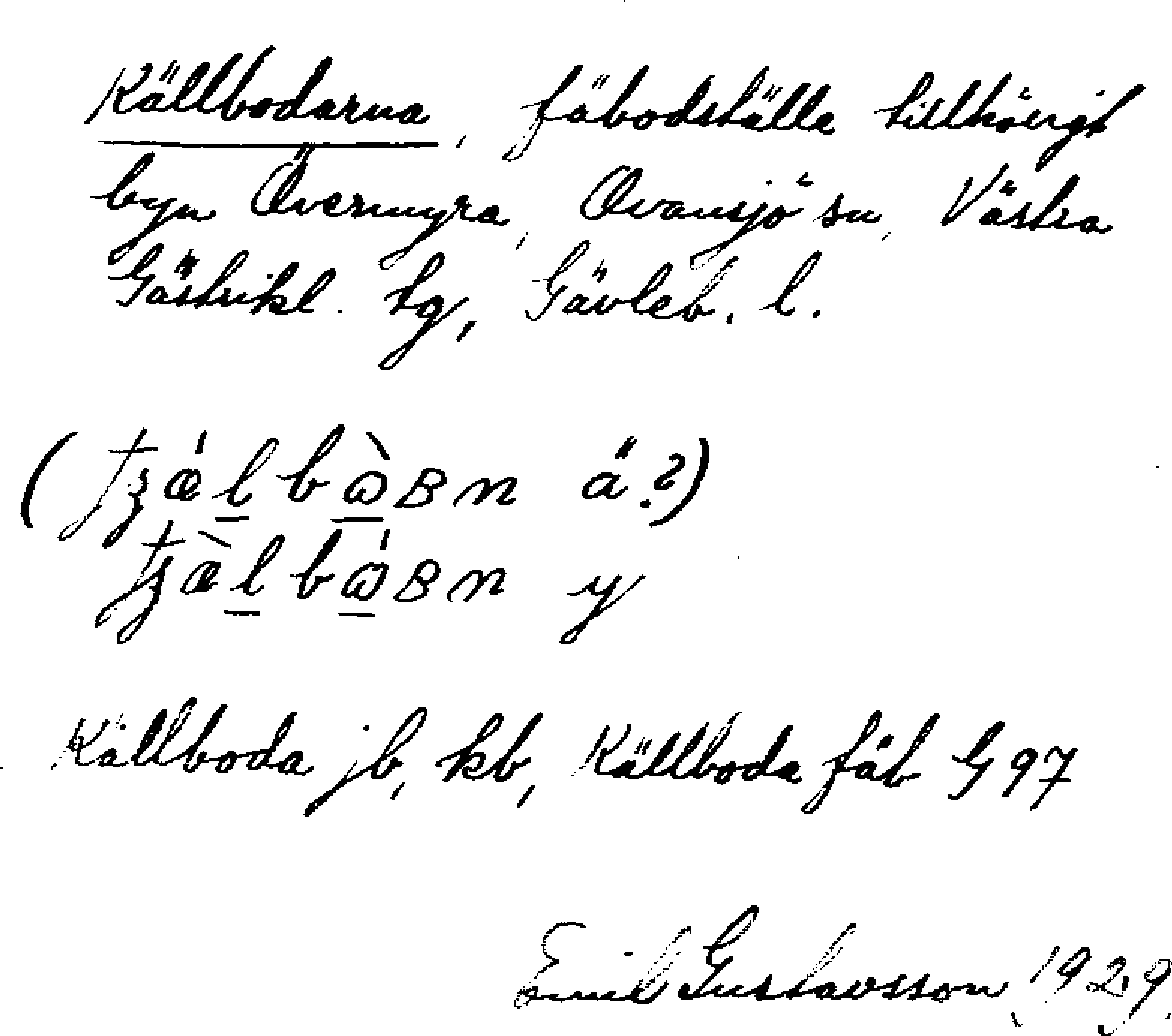 Källbodarna, fäbodställe tillhörigt
byn Övermyra, Ovansjö sn, Västra
Gästrikl. tg, Gävleb. l.
(tʒǽl bὼʙn ä?)
tʒæ̀l bώʙn y
Källboda jb, kb, Källboda fäb G97
Emil Gustavsson 1929.